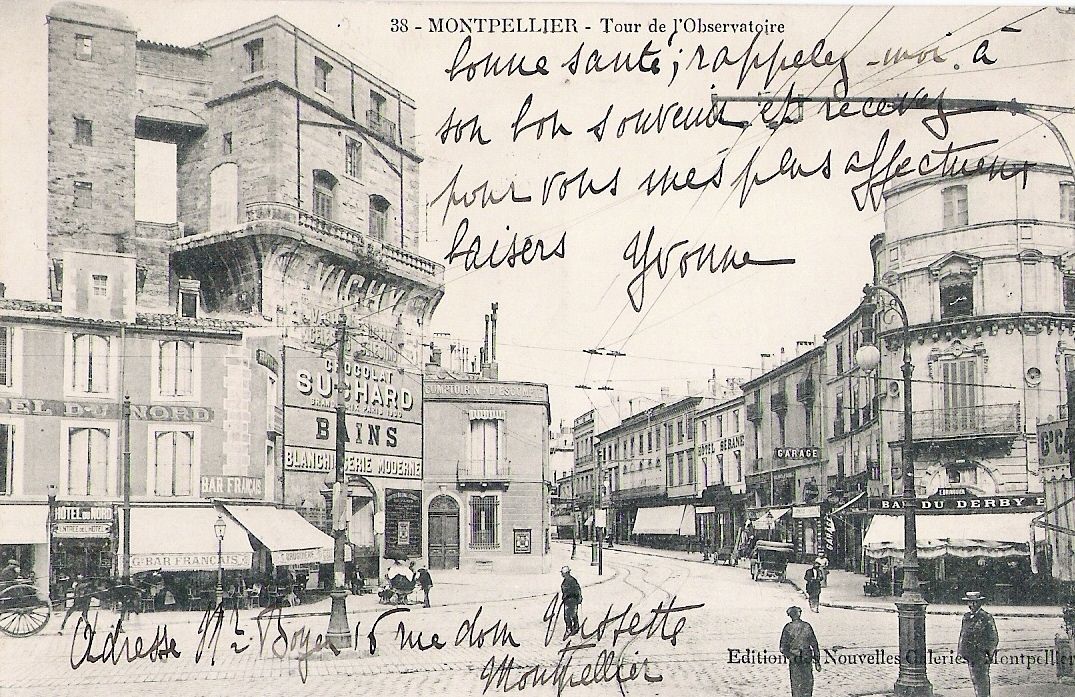 38 - MONTPELLIER - Tour de l'Observatoire
bonne santé; rappelez-moi à
son bon souvenir et recevez
pour vous mes plus affectueux
baisers Yvonne
VICHY
CHOCOLAT
SUCHARD
GRAND PRIX PARIS 1900
BAINS
BLANCHISSERIE MODERNE
COMPTOIR NAL D'ESCOMPTE
HOTEL DU NORD
BAR FRANCAIS
HOTEL DU NORD
ENTRÉE DE L'HOTEL
GD BAR FRANCAIS
HÔTEL
GARAGE
BAR DU DERBY
Adresse Mr Boyer 16 rue dom Vaissette
Montpellier
Edition des Nouvelles Galeries, Montpellier